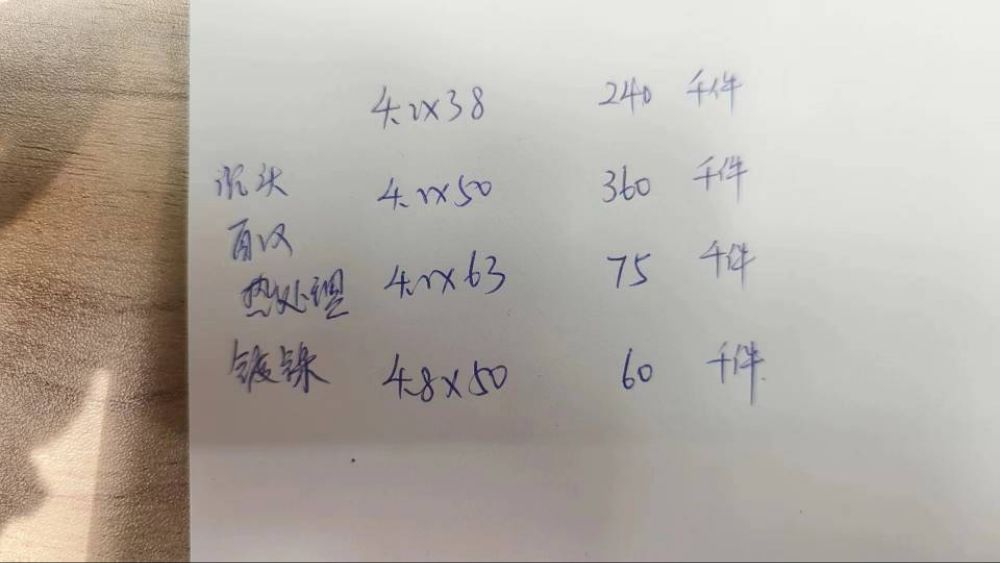 4.2x38 240 千件
沉头 4.2x50 360 千件
热处理 4.2x63 75 千件
镀 4.8x50 60 千件